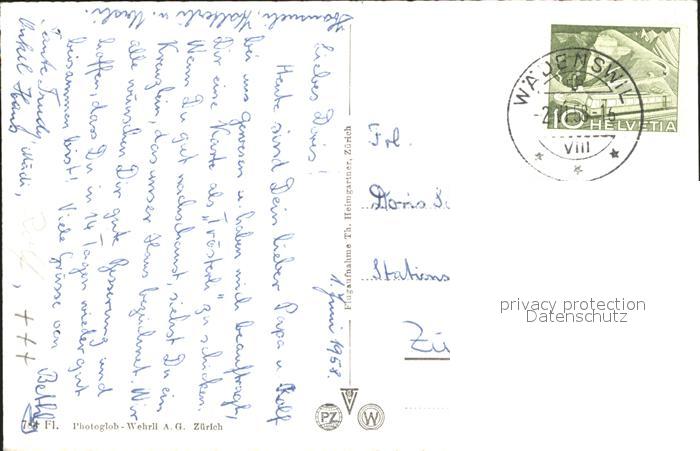 1. Juni 1958.
Liebes Doris!
Heute sind Dein lieber Papa u. Rolf
bei uns gewesen u. haben mich beauftragt,
Dir eine Karte als „Trösterli" zu schicken.
Wenn Du gut nachschaust, siehst Du ein
Kreuzlein, das unser Haus bezeichnet. Wir
alle wünschen Dir gute Besserung und
hoffen, dass Du in 14 Tagen wieder gut
beisammen bist! Viele Grüsse von Bethly
Tante Trudy, Rolf, +++
Onkel Hans
Flugaufnahme Th. Heimgartner, Zürich
784 Fl. Photoglob-Wehrli A. G. Zürich
PZ
W
Frl.
Doris
Stations
Zü
WÄDENSWIL
VIII
10 HELVETIA
privacy protection
Datenschutz